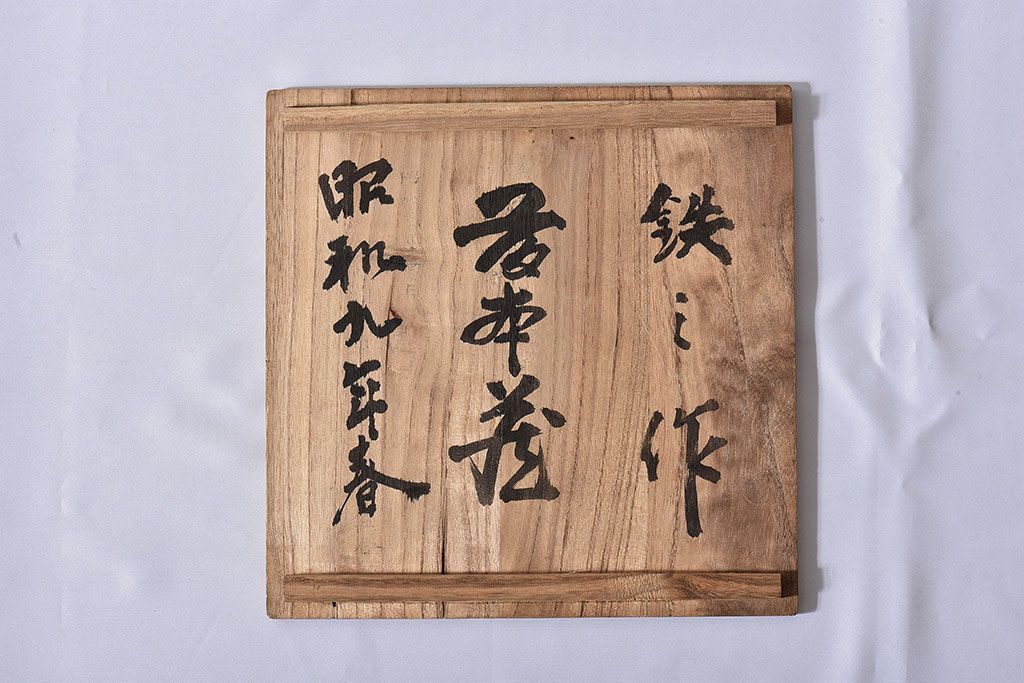 鉄之作
本蔵
昭和九年春